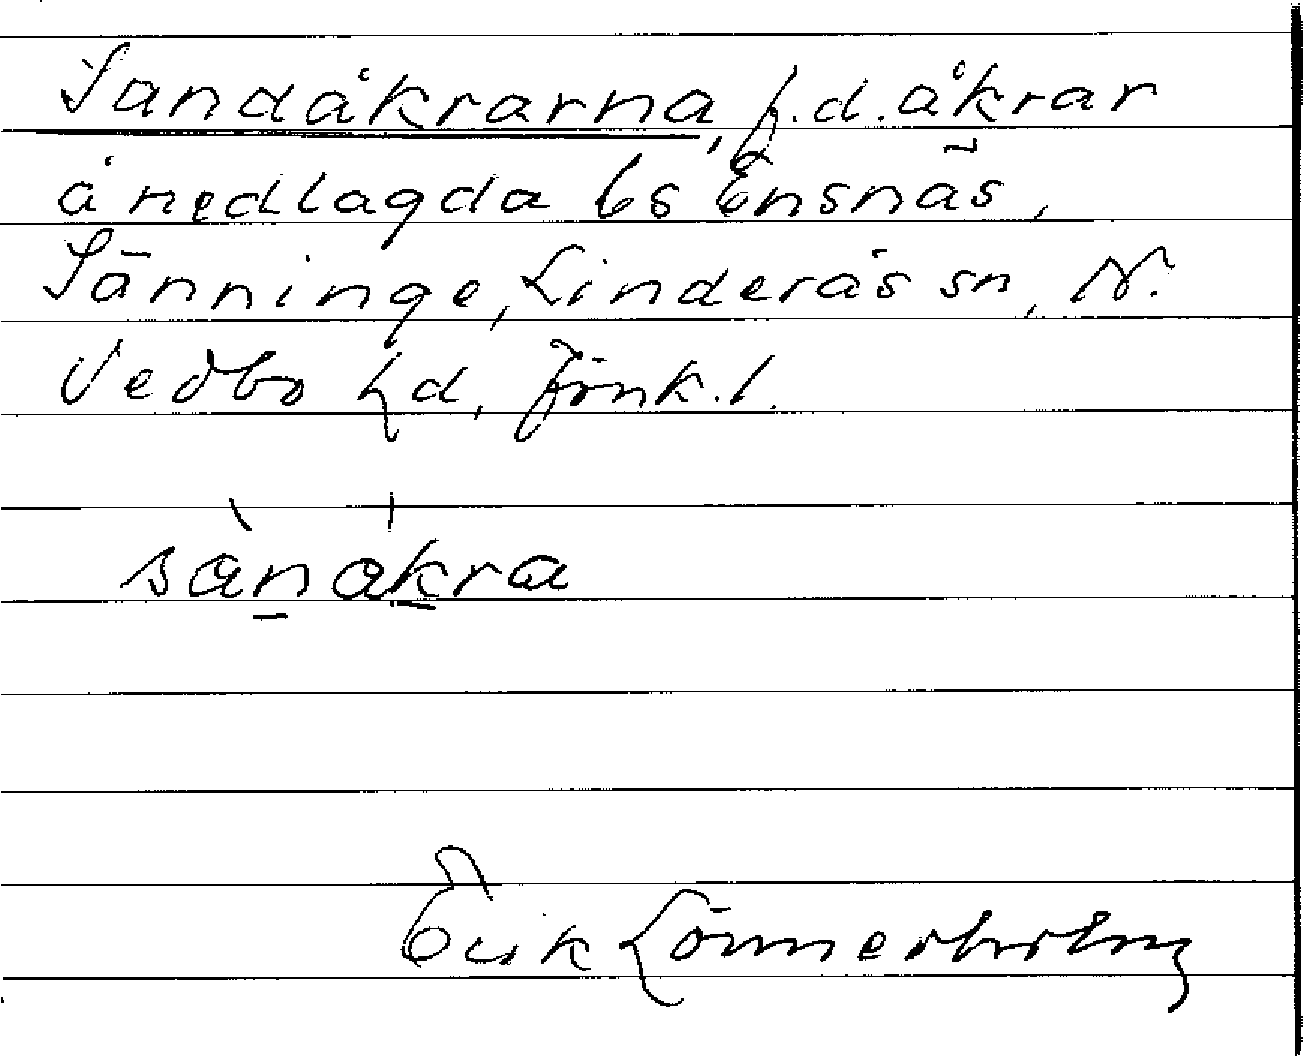 Sandåkrarna, f.d. åkrar
å nedlagda ls Ensnäs,
Sänninge, Linderås sn, N.
Vedbo hd, Jönk. l.
sànákra
Erik Lönnerholm